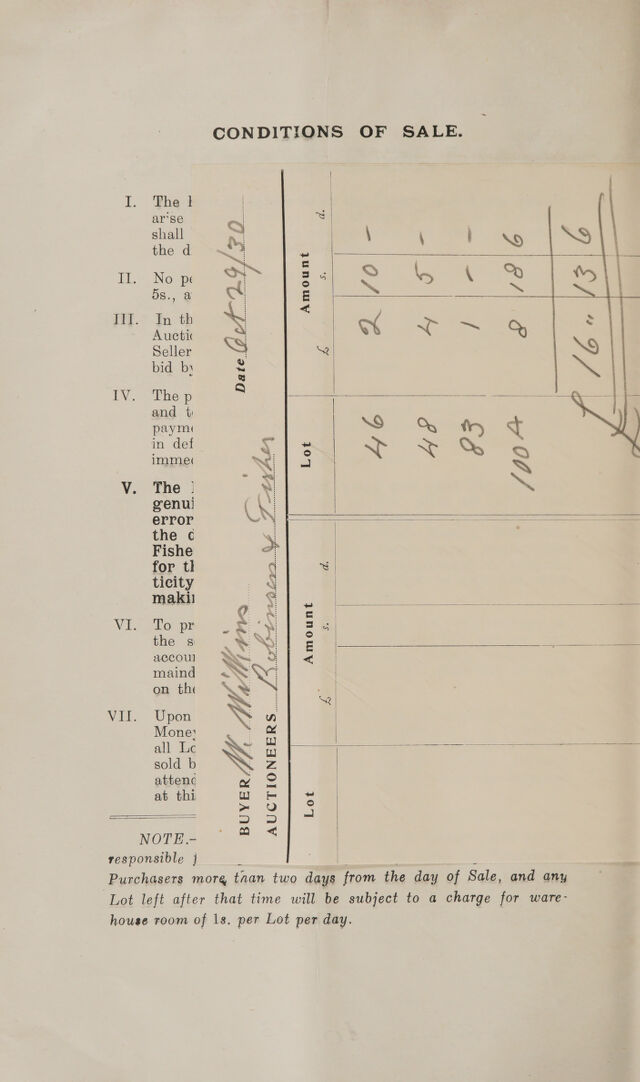 CONDITIONS OF SALE.
I. The
arise
shall
the d
II. No pe
5s., a
III. In th
Auctic
Seller
bid by
IV. The p
and t
payme
in def
immed
V. The
genui
error
the d
Fishe
for th
ticity
makin
VI. To pr
the s
accou
maind
on the
VII. Upon
Money
all Lo
sold b
attend
at thi
NOTE.-
responsible
Purchasers more than two days from the day of Sale, and any
Lot left after that time will be subject to a charge for ware-
house room of 1s. per Lot per day.
BUYER W. Williams Date Oct 29/30
AUCTIONEERS Robinson & Fisher
Lot Amount Lot Amount
£ s. d. £ s. d.
46 2 10 -
48 4 5 -
83 1 - -
100A 8 18 6
£ 16 " 13 6